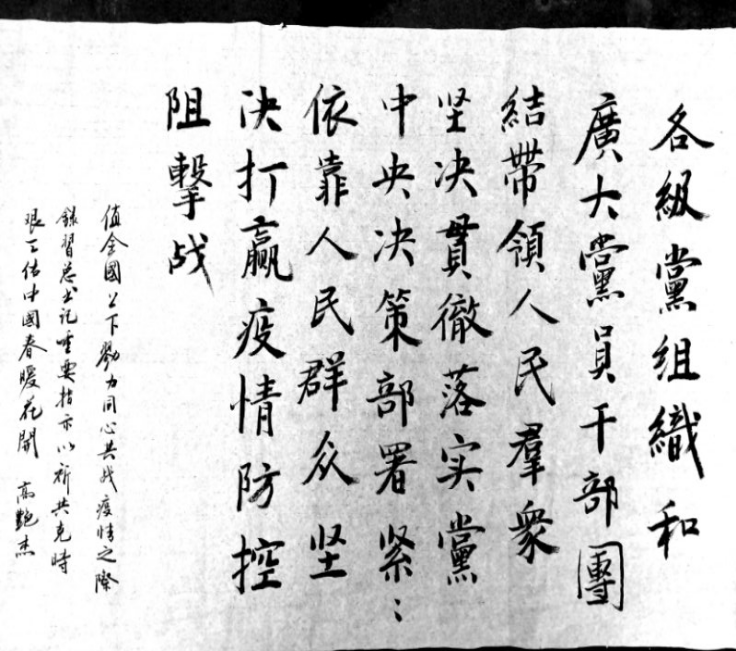 各級黨組織和
廣大黨員干部團
結帶領人民羣衆
坚决貫徹落实黨
中央决策部署緊:
依靠人民群众坚
决打赢疫情防控
阻擊战
值全國上下勠力同心共战疫情之際
錄習总书记重要指示以祈共克時
艰天佑中國春暖花開 高艷杰